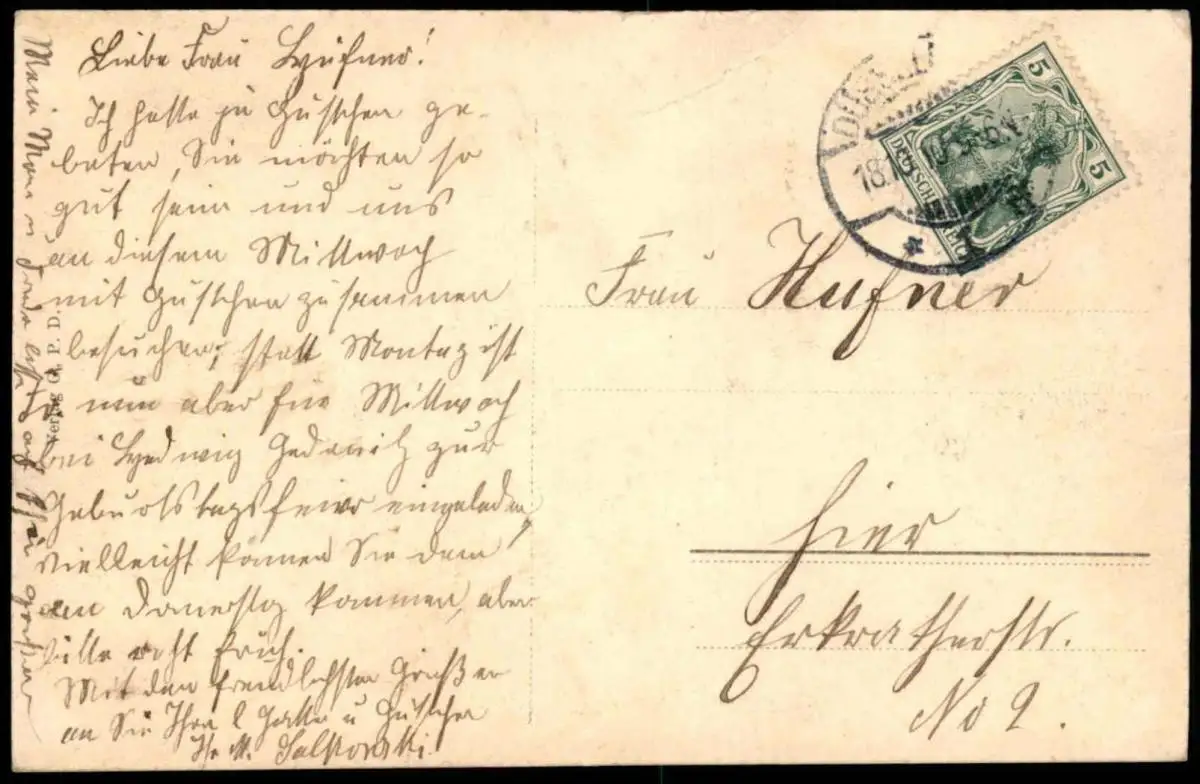 Liebe Frau Hüfner!
Ich hatte ja Gustchen ge-
beten, Sie möchten so
gut sein und uns
an diesem Mittwoch
mit Gustchen zusammen
besuchen, statt Montag ist
nun aber für Mittwoch
bei Hedwig zur
Geburtstagsfeier eingeladen,
vielleicht können Sie dann
am Donerstag kommen, aber
bitte recht früh.
Mit den freundlichsten Grüßen
an Sie Ihren l Gatten u Gustchen
Ihr M. Salkowski.
Mein Mann
Verlag O. P. D.
DÜSSEL
18.10. 10. 5-6N
DEUTSCHES REICH
5
5
Frau Hufner
hier
Erkratherstr.
No 2.